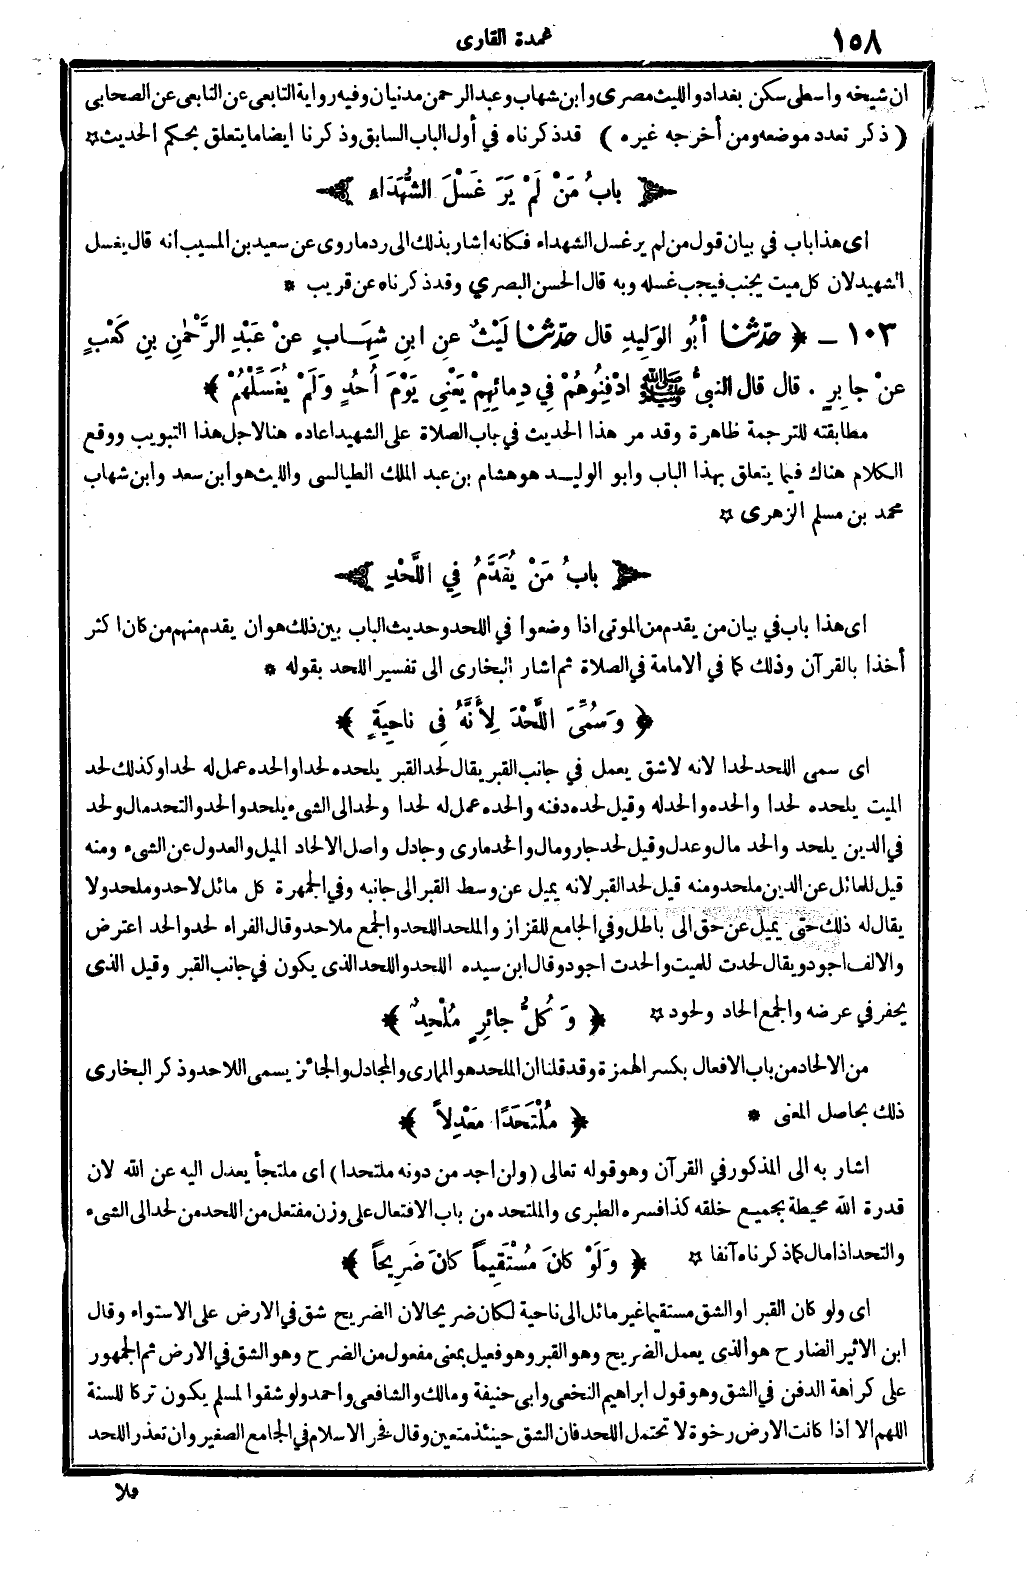 ١٥٨
عمدة القارى
ان شيخه واسطى سكن بغداد والليث مصرى وابن شهاب وعبد الرحمن مدنيان وفيه رواية التابعى عن التابعى عن الصحابى
( ذكر تعدد موضعه ومن أخرجه غيره ) قد ذكرناه في أول الباب السابق وذكرنا ايضا ما يتعلق بحكم الحديث ☆
﴿ بابُ مَنْ لَمْ يَرَ غَسْلَ الشُّهَدَاءِ ﴾
اى هذا باب في بيان قول من لم ير غسل الشهداء فكانه اشار بذلك الى رد ما روى عن سعيد بن المسيب انه قال يغسل
الشهيد لان كل ميت يجنب فيجب غسله وبه قال الحسن البصري وقد ذكرناه عن قريب *
١٠٣ ـ ﴿ حدّثنا أبُو الوَلِيدِ قال حدّثنا لَيْثٌ عنِ ابنِ شِهَابٍ عنْ عَبْدِ الرَّحْمٰنِ بنِ كَعْبٍ
عنْ جابِرٍ . قال قال النبيُّ ﷺ ادْفِنُوهُمْ فِي دِمائِهِمْ يَعْنِي يَوْمَ أُحُدٍ وَلَمْ يُغَسِّلْهُمْ ﴾
مطابقته للترجمة ظاهرة وقد مر هذا الحديث في باب الصلاة على الشهيد اعاده هنا لاجل هذا التبويب ووقع
الكلام هناك فيما يتعلق بهذا الباب وابو الوليد هو هشام بن عبد الملك الطيالسى والليث هو ابن سعد وابن شهاب
محمد بن مسلم الزهرى ☆
﴿ بابُ مَنْ يُقَدَّمُ فِي اللَّحْدِ ﴾
اى هذا باب في بيان من يقدم من الموتى اذا وضعوا في اللحد وحديث الباب بين ذلك هو ان يقدم منهم من كان اكثر
أخذا بالقرآن وذلك كما في الامامة في الصلاة ثم اشار البخارى الى تفسير اللحد بقوله *
﴿ وَسُمِّىَ اللَّحْدَ لِأَنَّهُ فِى ناحِيَةٍ ﴾
اى سمى اللحد لحدا لانه لا شق يعمل في جانب القبر يقال لحد القبر يلحده لحدا والحده عمل له لحدا وكذلك لحد
الميت يلحده لحدا والحده والحد له وقيل لحده دفنه والحده عمل له لحدا ولحد الى الشىء يلحد والحد والتحد مال ولحد
في الدين يلحد والحد مال وعدل وقيل لحد جار ومال والحد مارى وجادل واصل الالحاد الميل والعدول عن الشىء ومنه
قيل للمائل عن الدين ملحد ومنه قيل لحد القبر لانه يميل عن وسط القبر الى جانبه وفي الجمهرة كل مائل لاحد وملحد ولا
يقال له ذلك حتى يميل عن حق الى باطل وفي الجامع للقزاز والملحد اللحد والجمع ملاحد وقال الفراء لحد والحد اعترض
والالف اجود ويقال لحدت للميت والحدت اجود وقال ابن سيده اللحد واللحد الذى يكون في جانب القبر وقيل الذى
يحفر في عرضه والجمع الحاد ولحود ☆ ﴿ وَكُلُّ جائِرٍ مُلْحِدٌ ﴾
من الالحاد من باب الافعال بكسر الهمزة وقد قلنا ان الملحد هو المارى والمجادل والجائز يسمى اللاحد وذكر البخارى
ذلك بحاصل المعنى * ﴿ مُلْتَحَدًا مَعْدِلاً ﴾
اشار به الى المذكور في القرآن وهو قوله تعالى ( ولن اجد من دونه ملتحدا ) اى ملتجأ يعدل اليه عن الله لان
قدرة الله محيطة بجميع خلقه كذا فسره الطبرى والملتحد من باب الافتعال على وزن مفتعل من اللحد من لحد الى الشىء
والتحد اذا مال كما ذكرناه آنفا ☆ ﴿ وَلَوْ كانَ مُسْتَقِيماً كانَ ضَرِيحاً ﴾
اى ولو كان القبر او الشق مستقيما غير مائل الى ناحية لكان ضريحا لان الضريح شق في الارض على الاستواء وقال
ابن الاثير الضارح هو الذى يعمل الضريح وهو القبر وهو فعيل بمعنى مفعول من الضرح وهو الشق في الارض ثم الجمهور
على كراهة الدفن في الشق وهو قول ابراهيم النخعى وابى حنيفة ومالك والشافعى واحمد ولو شقوا لمسلم يكون تركا للسنة
اللهم الا اذا كانت الارض رخوة لا تحتمل اللحد فان الشق حينئذ متعين وقال فخر الاسلام في الجامع الصغير وان تعذر اللحد
فلا